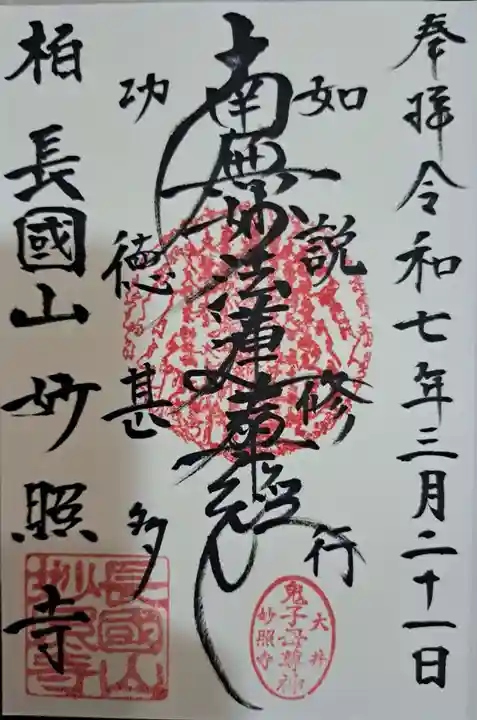 奉拝令和七年三月二十一日
如説修行
南無妙法蓮華経
功徳甚多
柏長國山妙照寺
大井
鬼子母尊神
妙照寺
長國山
妙照寺